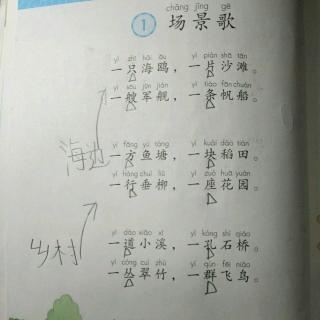 chǎng jǐng gē
1 场景歌
yì zhī hǎi ōu yí piàn shā tān
一只海鸥，一片沙滩。
yì sōu jūn jiàn yì tiáo fān chuán
一艘军舰，一条帆船。
海边
yì fāng yú táng yí kuài dào tián
一方鱼塘，一块稻田。
yì háng chuí liǔ yí zuò huā yuán
一行垂柳，一座花园。
乡村
yí dào xiǎo xī yì kǒng shí qiáo
一道小溪，一孔石桥。
yì cóng cuì zhú yì qún fēi niǎo
一丛翠竹，一群飞鸟。